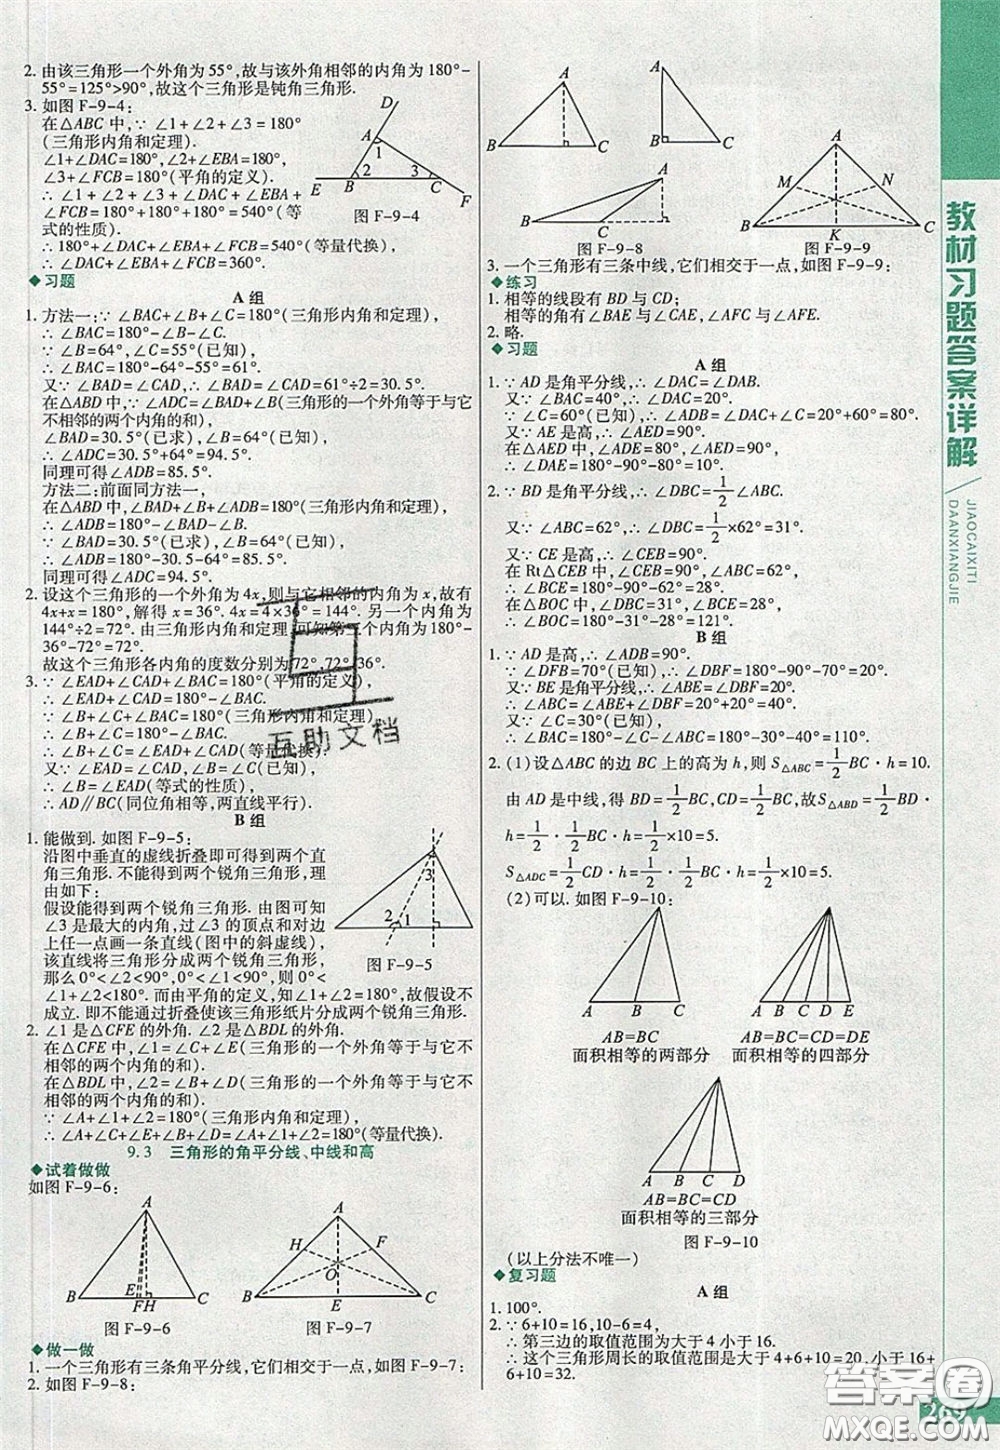 2. 由该三角形一个外角为55°,故与该外角相邻的内角为180°-
55°=125°>90°,故这个三角形是钝角三角形.
3. 如图 F-9-4:
在△ABC 中,∵ ∠1+∠2+∠3=180°
(三角形内角和定理).
∠1+∠DAC=180°,∠2+∠EBA=180°,
∠3+∠FCB=180°(平角的定义).
∴ ∠1+∠2+∠3+∠DAC+∠EBA+
∠FCB=180°+180°+180°=540°(等
式的性质).
∴ 180°+∠DAC+∠EBA+∠FCB=540°(等量代换),
∴ ∠DAC+∠EBA+∠FCB=360°.
D
A
1
2
3
E
B
C
F
图 F-9-4
◆习题
A 组
1. 方法一:∵ ∠BAC+∠B+∠C=180°(三角形内角和定理),
∴ ∠BAC=180°-∠B-∠C.
∵ ∠B=64°,∠C=55°(已知),
∴ ∠BAC=180°-64°-55°=61°.
又∵ ∠BAD=∠CAD,∴ ∠BAD=61°÷2=30.5°.
在△ABD 中,∠ADC=∠BAD+∠B(三角形的一个外角等于与它
不相邻的两个内角的和),
∠BAD=30.5°(已求),∠B=64°(已知),
∴ ∠ADC=30.5°+64°=94.5°.
同理可得∠ADB=85.5°.
方法二:前面同方法一,
在△ABD 中,∠BAD+∠B+∠ADB=180°(三角形内角和定理),
∴ ∠ADB=180°-∠BAD-∠B.
∵ ∠BAD=30.5°(已求),∠B=64°(已知),
∴ ∠ADB=180°-30.5°-64°=85.5°.
同理可得∠ADC=94.5°.
2. 设这个三角形的一个外角为4x,则与它相邻的内角为x,故有
4x+x=180°,解得 x=36°. 4x=4×36°=144°. 另一个内角为
144°÷2=72°. 由三角形内角和定理,可知第三个内角为180°-
36°-72°=72°.
故这个三角形各内角的度数分别为72°,72°,36°.
3. ∵ ∠EAD+∠CAD+∠BAC=180°(平角的定义),
∴ ∠EAD+∠CAD=180°-∠BAC.
∵ ∠B+∠C+∠BAC=180°(三角形内角和定理),
∴ ∠B+∠C=180°-∠BAC.
∴ ∠B+∠C=∠EAD+∠CAD(等量代换).
又∵ ∠EAD=∠CAD,∠B=∠C(已知),
∴ ∠B=∠EAD(等式的性质),
∴ AD∥BC(同位角相等,两直线平行).
B 组
1. 能做到. 如图 F-9-5:
沿图中垂直的虚线折叠即可得到两个直
角三角形. 不能得到两个锐角三角形,理
由如下:
假设能得到两个锐角三角形. 由图可知
∠3是最大的内角,过∠3的顶点和对边
上任一点画一条直线(图中的斜虚线),
该直线将三角形分成两个锐角三角形,
那么 0°<∠2<90°,0°<∠1<90°,则 0°<
∠1+∠2<180°. 而由平角的定义,知∠1+∠2=180°,故假设不
成立. 即不能通过折叠使该三角形纸片分成两个锐角三角形.
3
2
1
图 F-9-5
2. ∠1是△CFE 的外角. ∠2是△BDL 的外角.
在△CFE 中,∠1=∠C+∠E(三角形的一个外角等于与它不
相邻的两个内角的和).
在△BDL 中,∠2=∠B+∠D(三角形的一个外角等于与它不相
邻的两个内角的和).
∵ ∠A+∠1+∠2=180°(三角形内角和定理),
∴ ∠A+∠C+∠E+∠B+∠D=∠A+∠1+∠2=180°(等量代换).
9.3 三角形的角平分线、中线和高
◆试着做做
如图 F-9-6:
A
B
E
F
H
C
图 F-9-6
A
H
F
O
B
E
C
图 F-9-7
◆做一做
1. 一个三角形有三条角平分线,它们相交于一点,如图 F-9-7:
2. 如图 F-9-8:
A
B
C
A
B
C
A
B
C
图 F-9-8
A
M
N
B
K
C
图 F-9-9
3. 一个三角形有三条中线,它们相交于一点,如图 F-9-9:
◆练习
1. 相等的线段有 BD 与 CD;
相等的角有∠BAE 与∠CAE,∠AFC 与∠AFB.
2. 略.
◆习题
A 组
1. ∵ AD 是角平分线,∴ ∠DAC=∠DAB.
又∵ ∠BAC=40°,∴ ∠DAC=20°.
∵ ∠C=60°(已知),∴ ∠ADE=∠DAC+∠C=20°+60°=80°.
又∵ AE 是高,∴ ∠AED=90°.
在△AED 中,∠ADE=80°,∠AED=90°,
∴ ∠DAE=180°-90°-80°=10°.
2. ∵ BD 是角平分线,∴ ∠DBC=1/2∠ABC.
又∵ ∠ABC=62°,∴ ∠DBC=1/2×62°=31°.
又∵ CE 是高,∴ ∠CEB=90°.
在 Rt△CEB 中,∠CEB=90°,∠ABC=62°,
∴ ∠BCE=180°-90°-62°=28°.
在△BOC 中,∠DBC=31°,∠BCE=28°,
∴ ∠BOC=180°-31°-28°=121°.
B 组
1. ∵ AD 是高,∴ ∠ADB=90°.
∵ ∠DFB=70°(已知),∴ ∠DBF=180°-90°-70°=20°.
又∵ BE 是角平分线,∴ ∠ABE=∠DBF=20°.
∴ ∠ABC=∠ABE+∠DBF=20°+20°=40°.
又∵ ∠C=30°(已知),
∴ ∠BAC=180°-∠ABC-∠C=180°-40°-30°=110°.
2. (1)设△ABC 的边 BC 上的高为 h,则 S△ABC=1/2BC·h=10.
由 AD 是中线,得 BD=1/2BC,CD=1/2BC,故 S△ABD=1/2BD·
h=1/2·1/2BC·h=1/2×10=5.
S△ADC=1/2CD·h=1/2·1/2BC·h=1/2×10=5.
(2)可以. 如图 F-9-10:
A B C
AB=BC
面积相等的两部分
A B C D E
AB=BC=CD=DE
面积相等的四部分
A B C D
AB=BC=CD
面积相等的三部分
图 F-9-10
(以上分法不唯一)
◆复习题
A 组
1. 100°.
2. ∵ 6+10=16,10-6=4,
∴ 第三边的取值范围为大于4小于16.
∴ 这个三角形周长的取值范围是大于4+6+10=20,小于16+
6+10=32.
教材习题答案详解
JIAOCAIXITI
DAANXIANGJIE
互助文档
269
答案圈
MXQE.COM